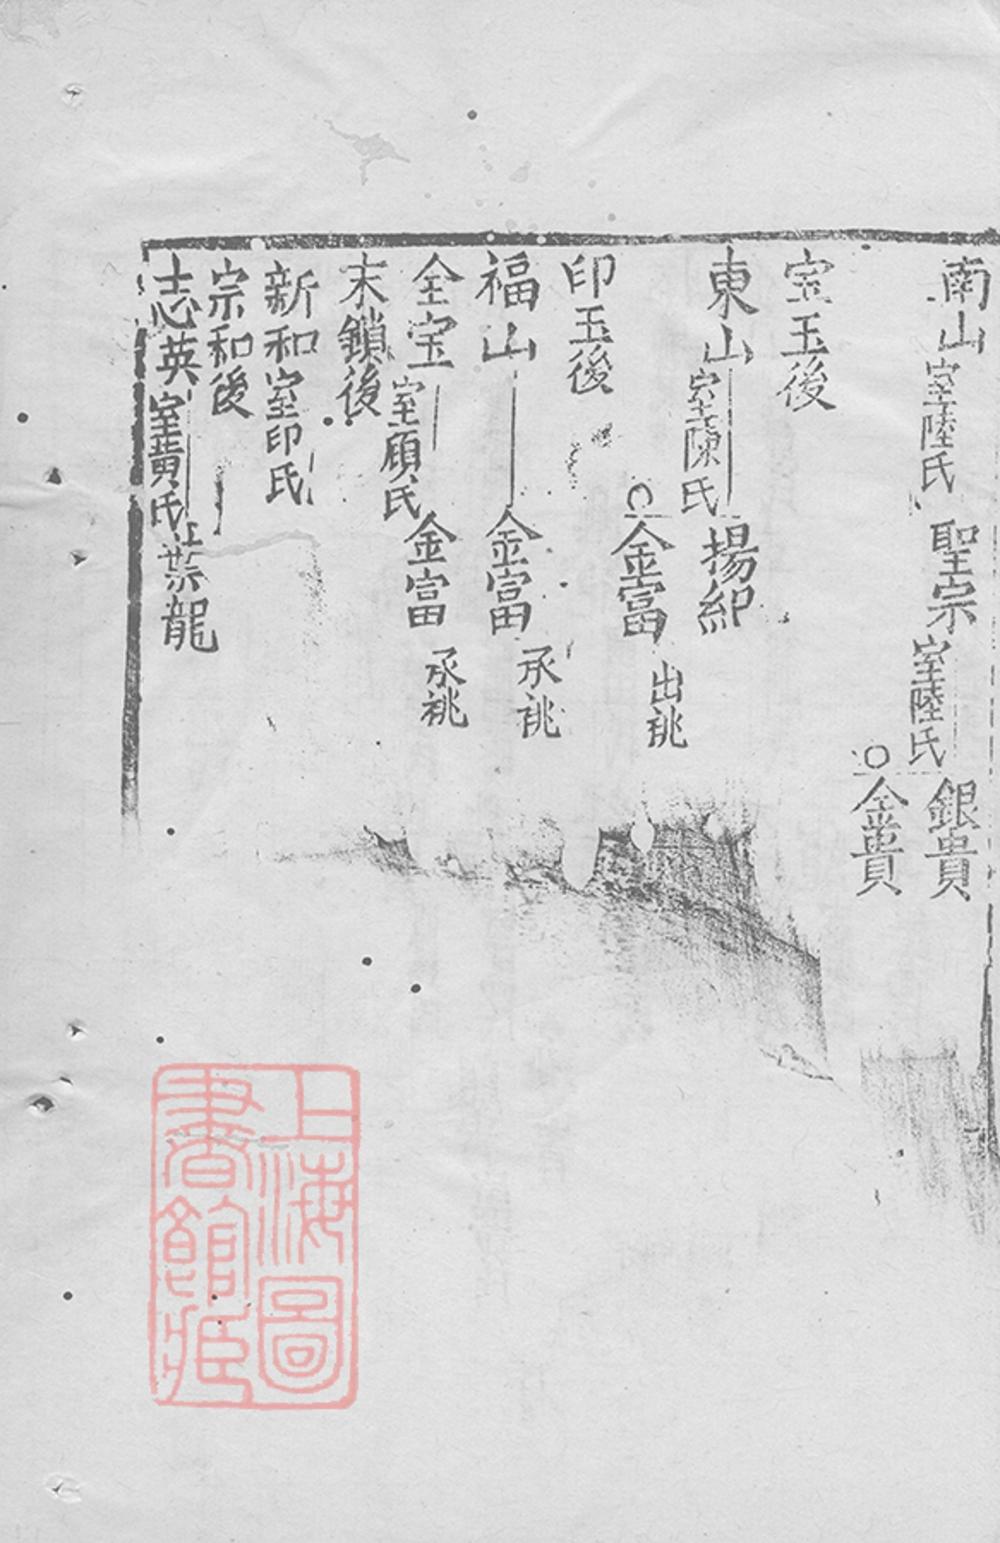 南山 室陸氏 聖宗 室陸氏 銀貴
金貴
宝玉後
東山 室陳氏 揚紀
金富 出祧
印玉後
福山 金富 承祧
全宝 室顧氏 金富 承祧
末鎖後
新和 室印氏
宗和後
志英 室黄氏 龍
上海圖
書館藏